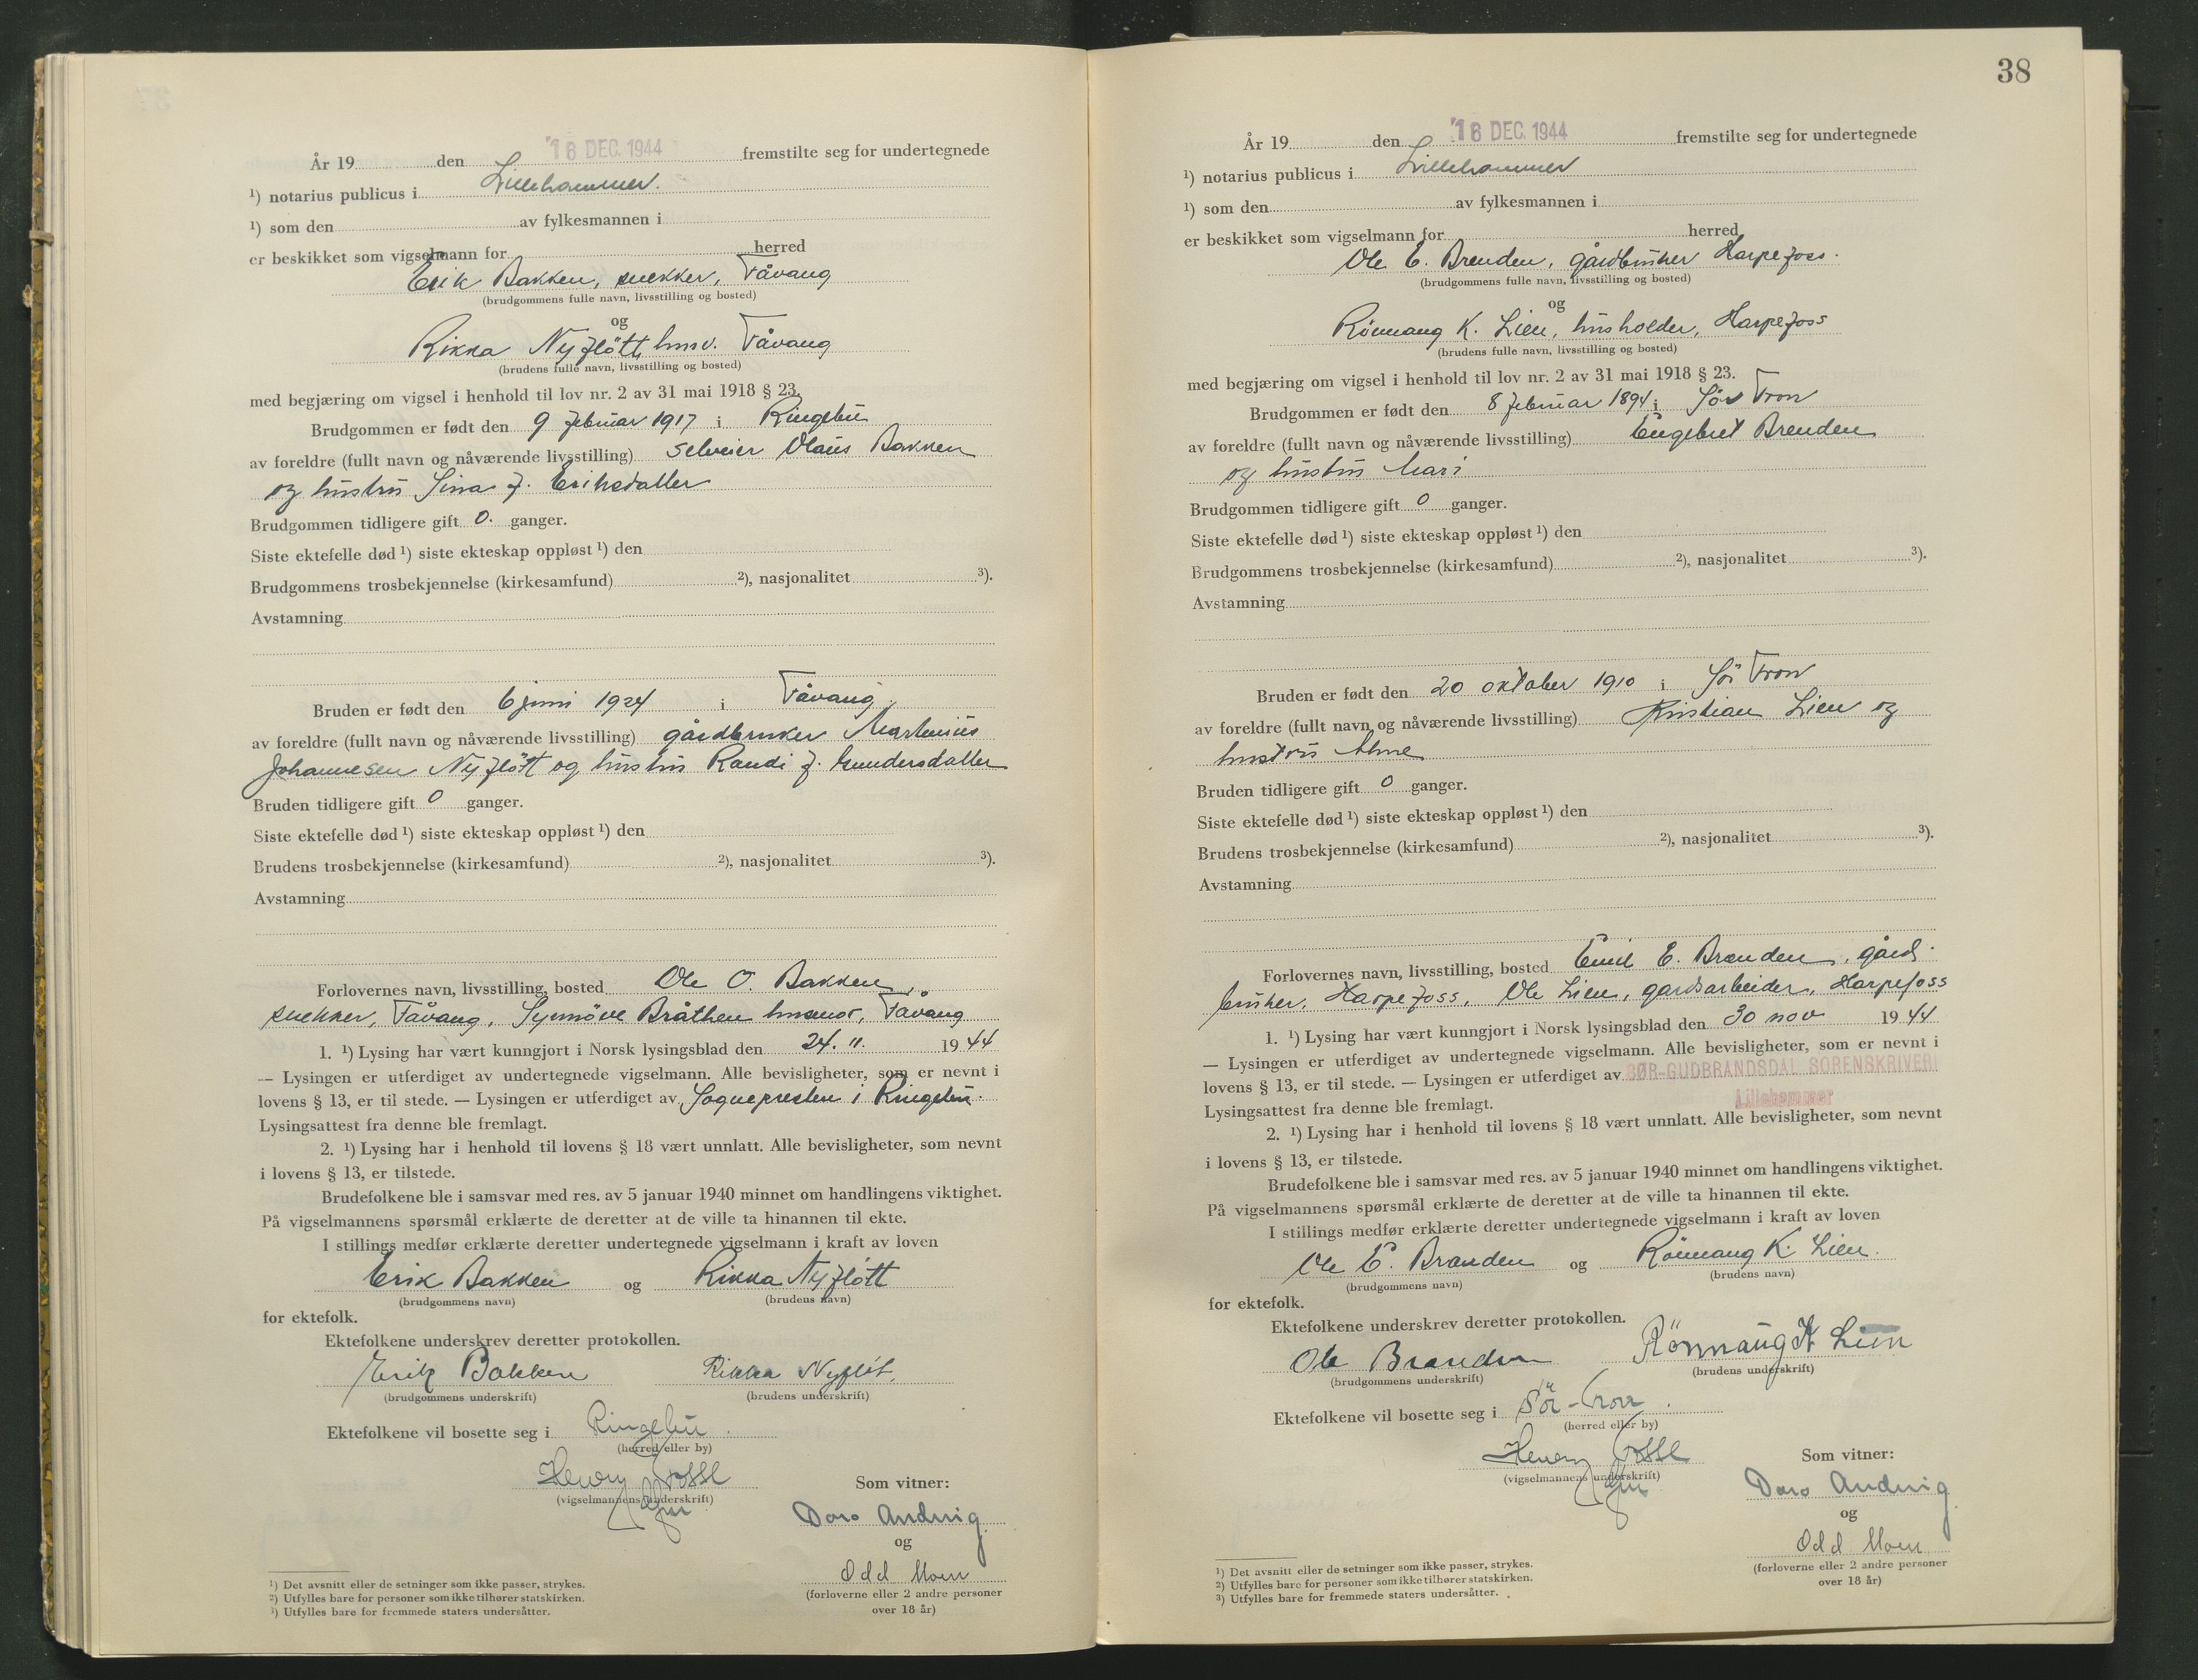 År 19 den 16 DEC. 1944 fremstilte seg for undertegnede
¹) notarius publicus i Lillehammer.
¹) som den av fylkesmannen i
er beskikket som vigselmann for herred
Erik Bakken, snekker, Fåvang
(brudgommens fulle navn, livsstilling og bosted)
og
Rikka Nyfløtt, husv. Fåvang
(brudens fulle navn, livsstilling og bosted)
med begjæring om vigsel i henhold til lov nr. 2 av 31 mai 1918 § 23.
Brudgommen er født den 9 februar 1917 i Ringebu
av foreldre (fullt navn og nåværende livsstilling) selveier Olaus Bakken
og hustru Sina f. Eriksdatter
Brudgommen tidligere gift 0. ganger.
Siste ektefelle død ¹) siste ekteskap oppløst ¹) den
Brudgommens trosbekjennelse (kirkesamfund) ²), nasjonalitet ³).
Avstamning
Bruden er født den 6 juni 1924 i Fåvang.
av foreldre (fullt navn og nåværende livsstilling) gårdbruker Martinius
Johannesen Nyfløtt og hustru Randi f. Gundersdatter
Bruden tidligere gift 0 ganger.
Siste ektefelle død ¹) siste ekteskap oppløst ¹) den
Brudens trosbekjennelse (kirkesamfund) ²), nasjonalitet ³).
Avstamning
Forlovernes navn, livsstilling, bosted Ole O. Bakken,
snekker, Fåvang, Synnöve Bråthen husmor, Fåvang
1. ¹) Lysing har vært kunngjort i Norsk lysingsblad den 24. 11. 1944
— Lysingen er utferdiget av undertegnede vigselmann. Alle bevisligheter, som er nevnt i
lovens § 13, er til stede. — Lysingen er utferdiget av Sognepresten i Ringebu.
Lysingsattest fra denne ble fremlagt.
2. ¹) Lysing har i henhold til lovens § 18 vært unnlatt. Alle bevisligheter, som nevnt
i lovens § 13, er tilstede.
Brudefolkene ble i samsvar med res. av 5 januar 1940 minnet om handlingens viktighet.
På vigselmannens spørsmål erklærte de deretter at de ville ta hinannen til ekte.
I stillings medfør erklærte deretter undertegnede vigselmann i kraft av loven
Erik Bakken og Rikka Nyfløtt
(brudgommens navn) (brudens navn)
for ektefolk.
Ektefolkene underskrev deretter protokollen.
Erik Bakken Rikka Nyfløt.
(brudgommens underskrift) (brudens underskrift)
Ektefolkene vil bosette seg i Ringebu.
(herred eller by)
Henry
(vigselmannens underskrift)
Som vitner:
Doro Andvig
og
Odd Moen
(forloverne eller 2 andre personer
over 18 år)
¹) Det avsnitt eller de setninger som ikke passer, strykes.
²) Utfylles bare for personer som ikke tilhører statskirken.
³) Utfylles bare for fremmede staters undersåtter.
38
År 19 den 16 DEC. 1944 fremstilte seg for undertegnede
¹) notarius publicus i Lillehammer
¹) som den av fylkesmannen i
er beskikket som vigselmann for herred
Ole E. Brenden, gårdbruker Harpefoss.
(brudgommens fulle navn, livsstilling og bosted)
og
Rönnaug K. Lien, husholder, Harpefoss
(brudens fulle navn, livsstilling og bosted)
med begjæring om vigsel i henhold til lov nr. 2 av 31 mai 1918 § 23.
Brudgommen er født den 8 februar 1894 i Sör Fron
av foreldre (fullt navn og nåværende livsstilling) Engebret Brenden
og hustru Mari
Brudgommen tidligere gift 0 ganger.
Siste ektefelle død ¹) siste ekteskap oppløst ¹) den
Brudgommens trosbekjennelse (kirkesamfund) ²), nasjonalitet ³).
Avstamning
Bruden er født den 20 oktober 1910 i Sör Fron
av foreldre (fullt navn og nåværende livsstilling) Kristian Lien og
hustru
Bruden tidligere gift 0 ganger.
Siste ektefelle død ¹) siste ekteskap oppløst ¹) den
Brudens trosbekjennelse (kirkesamfund) ²), nasjonalitet ³).
Avstamning
Forlovernes navn, livsstilling, bosted Emil E. Brænden, gård-
bruker, Harpefoss, Ole Lien, gardsarbeider, Harpefoss
1. ¹) Lysing har vært kunngjort i Norsk lysingsblad den 30 nov 1944
— Lysingen er utferdiget av undertegnede vigselmann. Alle bevisligheter, som er nevnt i
lovens § 13, er til stede. — Lysingen er utferdiget av SØR-GUDBRANDSDAL SORENSKRIVERI
Lillehammer
Lysingsattest fra denne ble fremlagt.
2. ¹) Lysing har i henhold til lovens § 18 vært unnlatt. Alle bevisligheter, som nevnt
i lovens § 13, er tilstede.
Brudefolkene ble i samsvar med res. av 5 januar 1940 minnet om handlingens viktighet.
På vigselmannens spørsmål erklærte de deretter at de ville ta hinannen til ekte.
I stillings medfør erklærte deretter undertegnede vigselmann i kraft av loven
Ole E. Brænden og Rönnaug K. Lien.
(brudgommens navn) (brudens navn)
for ektefolk.
Ektefolkene underskrev deretter protokollen.
Ole Brænden Rönnaug K Lien
(brudgommens underskrift) (brudens underskrift)
Ektefolkene vil bosette seg i Sör-Fron.
(herred eller by)
Henry
(vigselmannens underskrift)
Som vitner:
Doro Andvig
og
Odd Moen
(forloverne eller 2 andre personer
over 18 år)
¹) Det avsnitt eller de setninger som ikke passer, strykes.
²) Utfylles bare for personer som ikke tilhører statskirken.
³) Utfylles bare for fremmede staters undersåtter.